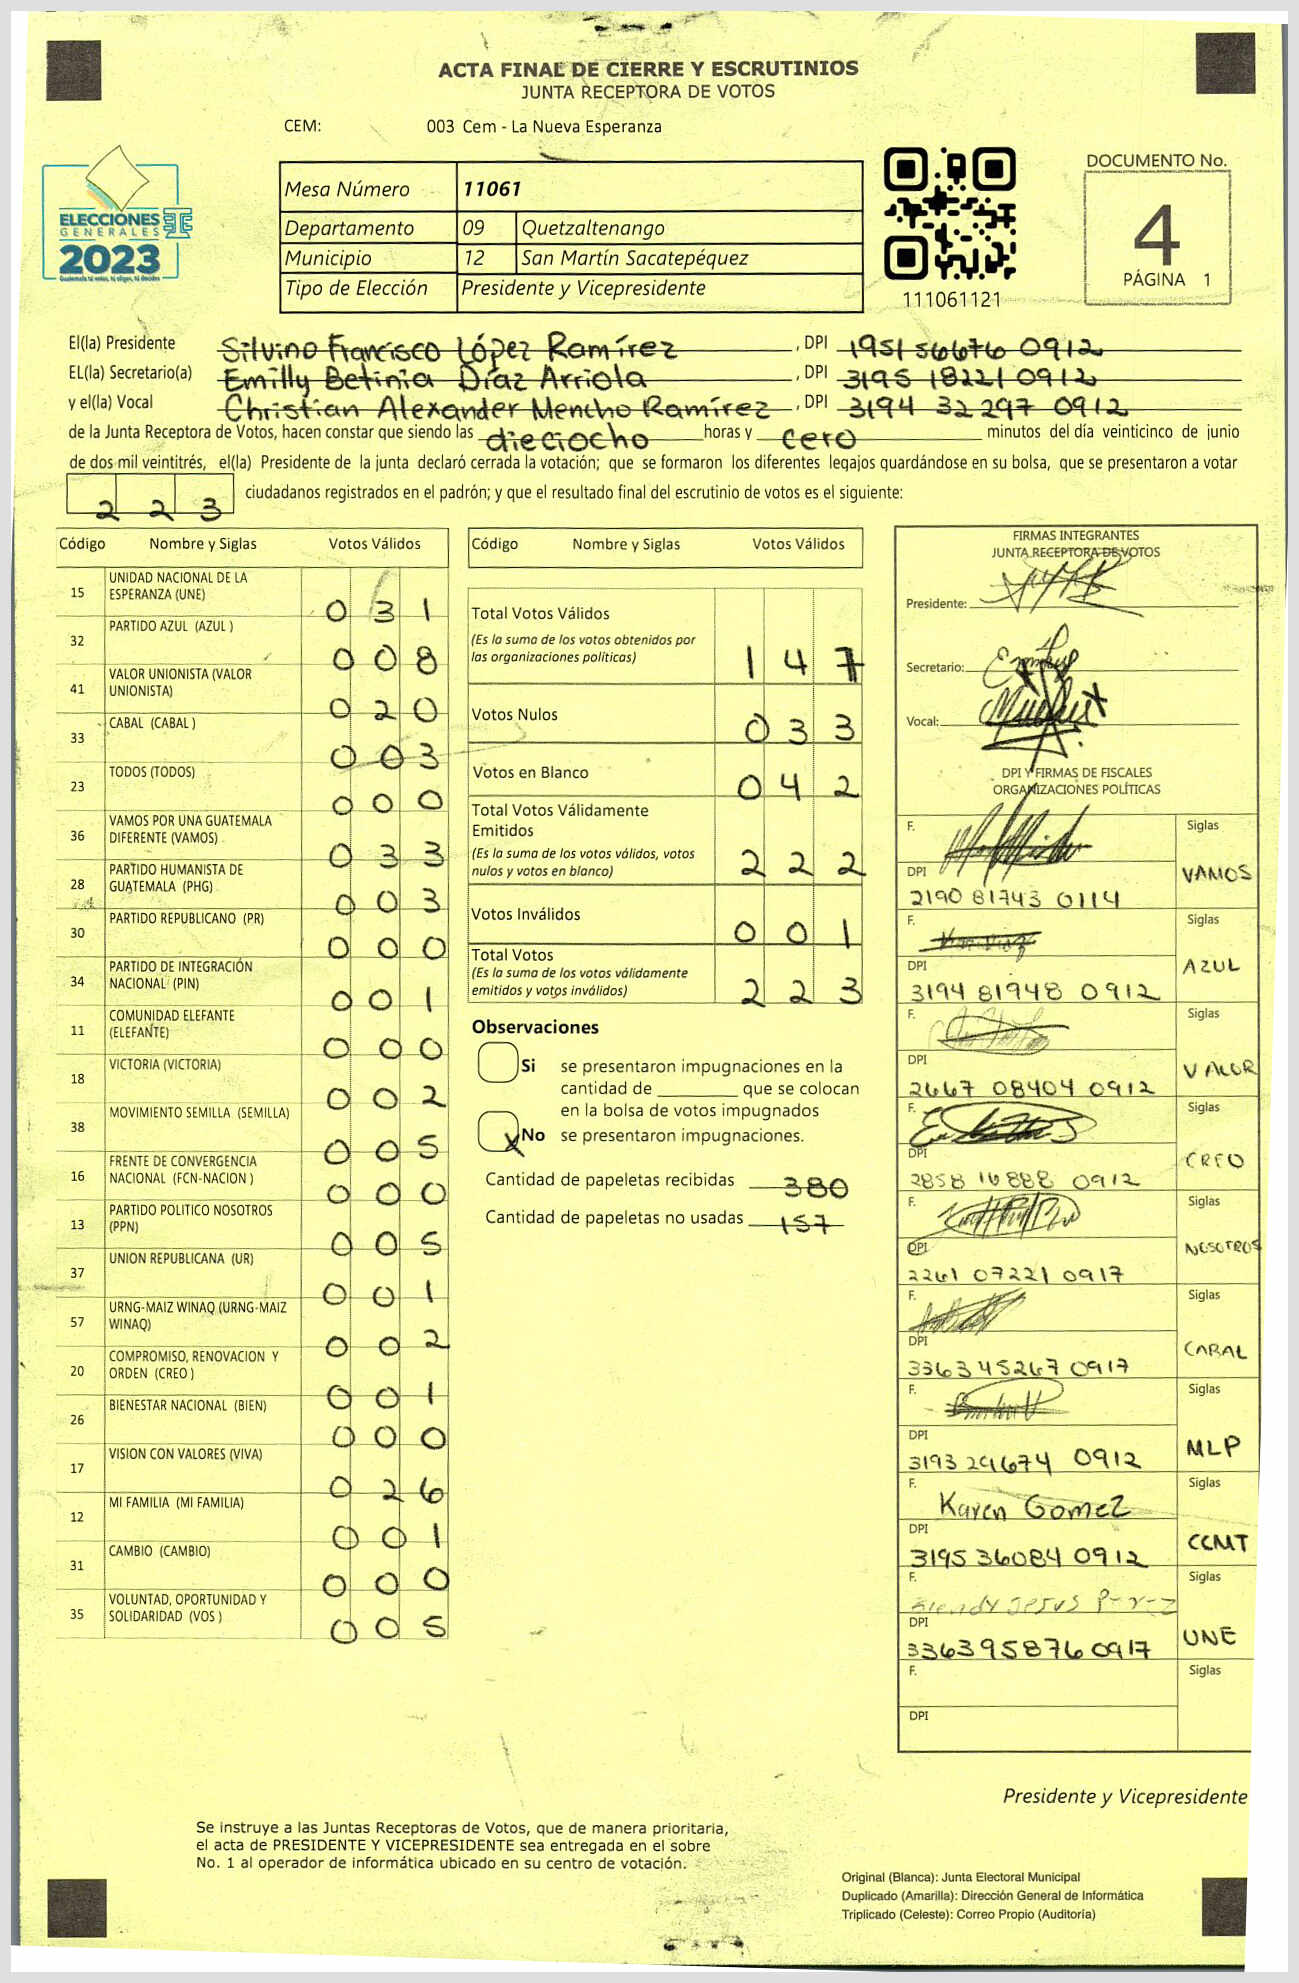 ACTA FINAL DE CIERRE Y ESCRUTINIOS
JUNTA RECEPTORA DE VOTOS
CEM: 003 Cem - La Nueva Esperanza
ELECCIONES
GENERALES
2023
Guatemala tú votas, tú eliges, tú decides
Mesa Número 11061
Departamento 09 Quetzaltenango
Municipio 12 San Martín Sacatepéquez
Tipo de Elección Presidente y Vicepresidente
111061121
DOCUMENTO No.
4
PÁGINA 1
El(la) Presidente Silvino Francisco López Ramírez, DPI 1951 56676 0912
EL(la) Secretario(a) Emilly Betinia Díaz Arriola, DPI 3195 18221 0912
y el(la) Vocal Christian Alexander Mencho Ramírez, DPI 3194 32297 0912
de la Junta Receptora de Votos, hacen constar que siendo las dieciocho horas y cero minutos del día veinticinco de junio
de dos mil veintitrés, el(la) Presidente de la junta declaró cerrada la votación; que se formaron los diferentes legajos quardándose en su bolsa, que se presentaron a votar
2 2 3 ciudadanos registrados en el padrón; y que el resultado final del escrutinio de votos es el siguiente:
Código Nombre y Siglas Votos Válidos
15 UNIDAD NACIONAL DE LA ESPERANZA (UNE) 0 3 1
32 PARTIDO AZUL (AZUL ) 0 0 8
41 VALOR UNIONISTA (VALOR UNIONISTA) 0 2 0
33 CABAL (CABAL ) 0 0 3
23 TODOS (TODOS) 0 0 0
36 VAMOS POR UNA GUATEMALA DIFERENTE (VAMOS) 0 3 3
28 PARTIDO HUMANISTA DE GUATEMALA (PHG) 0 0 3
30 PARTIDO REPUBLICANO (PR) 0 0 0
34 PARTIDO DE INTEGRACIÓN NACIONAL (PIN) 0 0 1
11 COMUNIDAD ELEFANTE (ELEFANTE) 0 0 0
18 VICTORIA (VICTORIA) 0 0 2
38 MOVIMIENTO SEMILLA (SEMILLA) 0 0 5
16 FRENTE DE CONVERGENCIA NACIONAL (FCN-NACION ) 0 0 0
13 PARTIDO POLITICO NOSOTROS (PPN) 0 0 5
37 UNION REPUBLICANA (UR) 0 0 1
57 URNG-MAIZ WINAQ (URNG-MAIZ WINAQ) 0 0 2
20 COMPROMISO, RENOVACION Y ORDEN (CREO ) 0 0 1
26 BIENESTAR NACIONAL (BIEN) 0 0 0
17 VISION CON VALORES (VIVA) 0 2 6
12 MI FAMILIA (MI FAMILIA) 0 0 1
31 CAMBIO (CAMBIO) 0 0 0
35 VOLUNTAD, OPORTUNIDAD Y SOLIDARIDAD (VOS ) 0 0 5
Código Nombre y Siglas Votos Válidos
Total Votos Válidos 1 4 7
(Es la suma de los votos obtenidos por
las organizaciones políticas)
Votos Nulos 0 3 3
Votos en Blanco 0 4 2
Total Votos Válidamente
Emitidos
(Es la suma de los votos válidos, votos
nulos y votos en blanco) 2 2 2
Votos Inválidos 0 0 1
Total Votos
(Es la suma de los votos válidamente
emitidos y votos inválidos) 2 2 3
Observaciones
Si se presentaron impugnaciones en la
cantidad de ________ que se colocan
en la bolsa de votos impugnados
X No se presentaron impugnaciones.
Cantidad de papeletas recibidas 380
Cantidad de papeletas no usadas 157
FIRMAS INTEGRANTES
JUNTA RECEPTORA DE VOTOS
Presidente:
Secretario:
Vocal:
DPI Y FIRMAS DE FISCALES
ORGANIZACIONES POLÍTICAS
F. Siglas
DPI VAMOS
2190 81743 0114
F. Siglas
DPI AZUL
3194 81948 0912
F. Siglas
DPI VALOR
2667 08404 0912
F. Siglas
DPI CREO
2858 16888 0912
F. Siglas
DPI NOSOTROS
2261 07221 0917
F. Siglas
DPI CABAL
3363 45267 0917
F. Siglas
DPI MLP
3193 29674 0912
F. Karen Gomez Siglas
DPI CCMT
3195 36084 0912
F. Siglas
DPI UNE
3363 95876 0917
F. Siglas
DPI
Presidente y Vicepresidente
Se instruye a las Juntas Receptoras de Votos, que de manera prioritaria,
el acta de PRESIDENTE Y VICEPRESIDENTE sea entregada en el sobre
No. 1 al operador de informática ubicado en su centro de votación.
Original (Blanca): Junta Electoral Municipal
Duplicado (Amarilla): Dirección General de Informática
Triplicado (Celeste): Correo Propio (Auditoría)